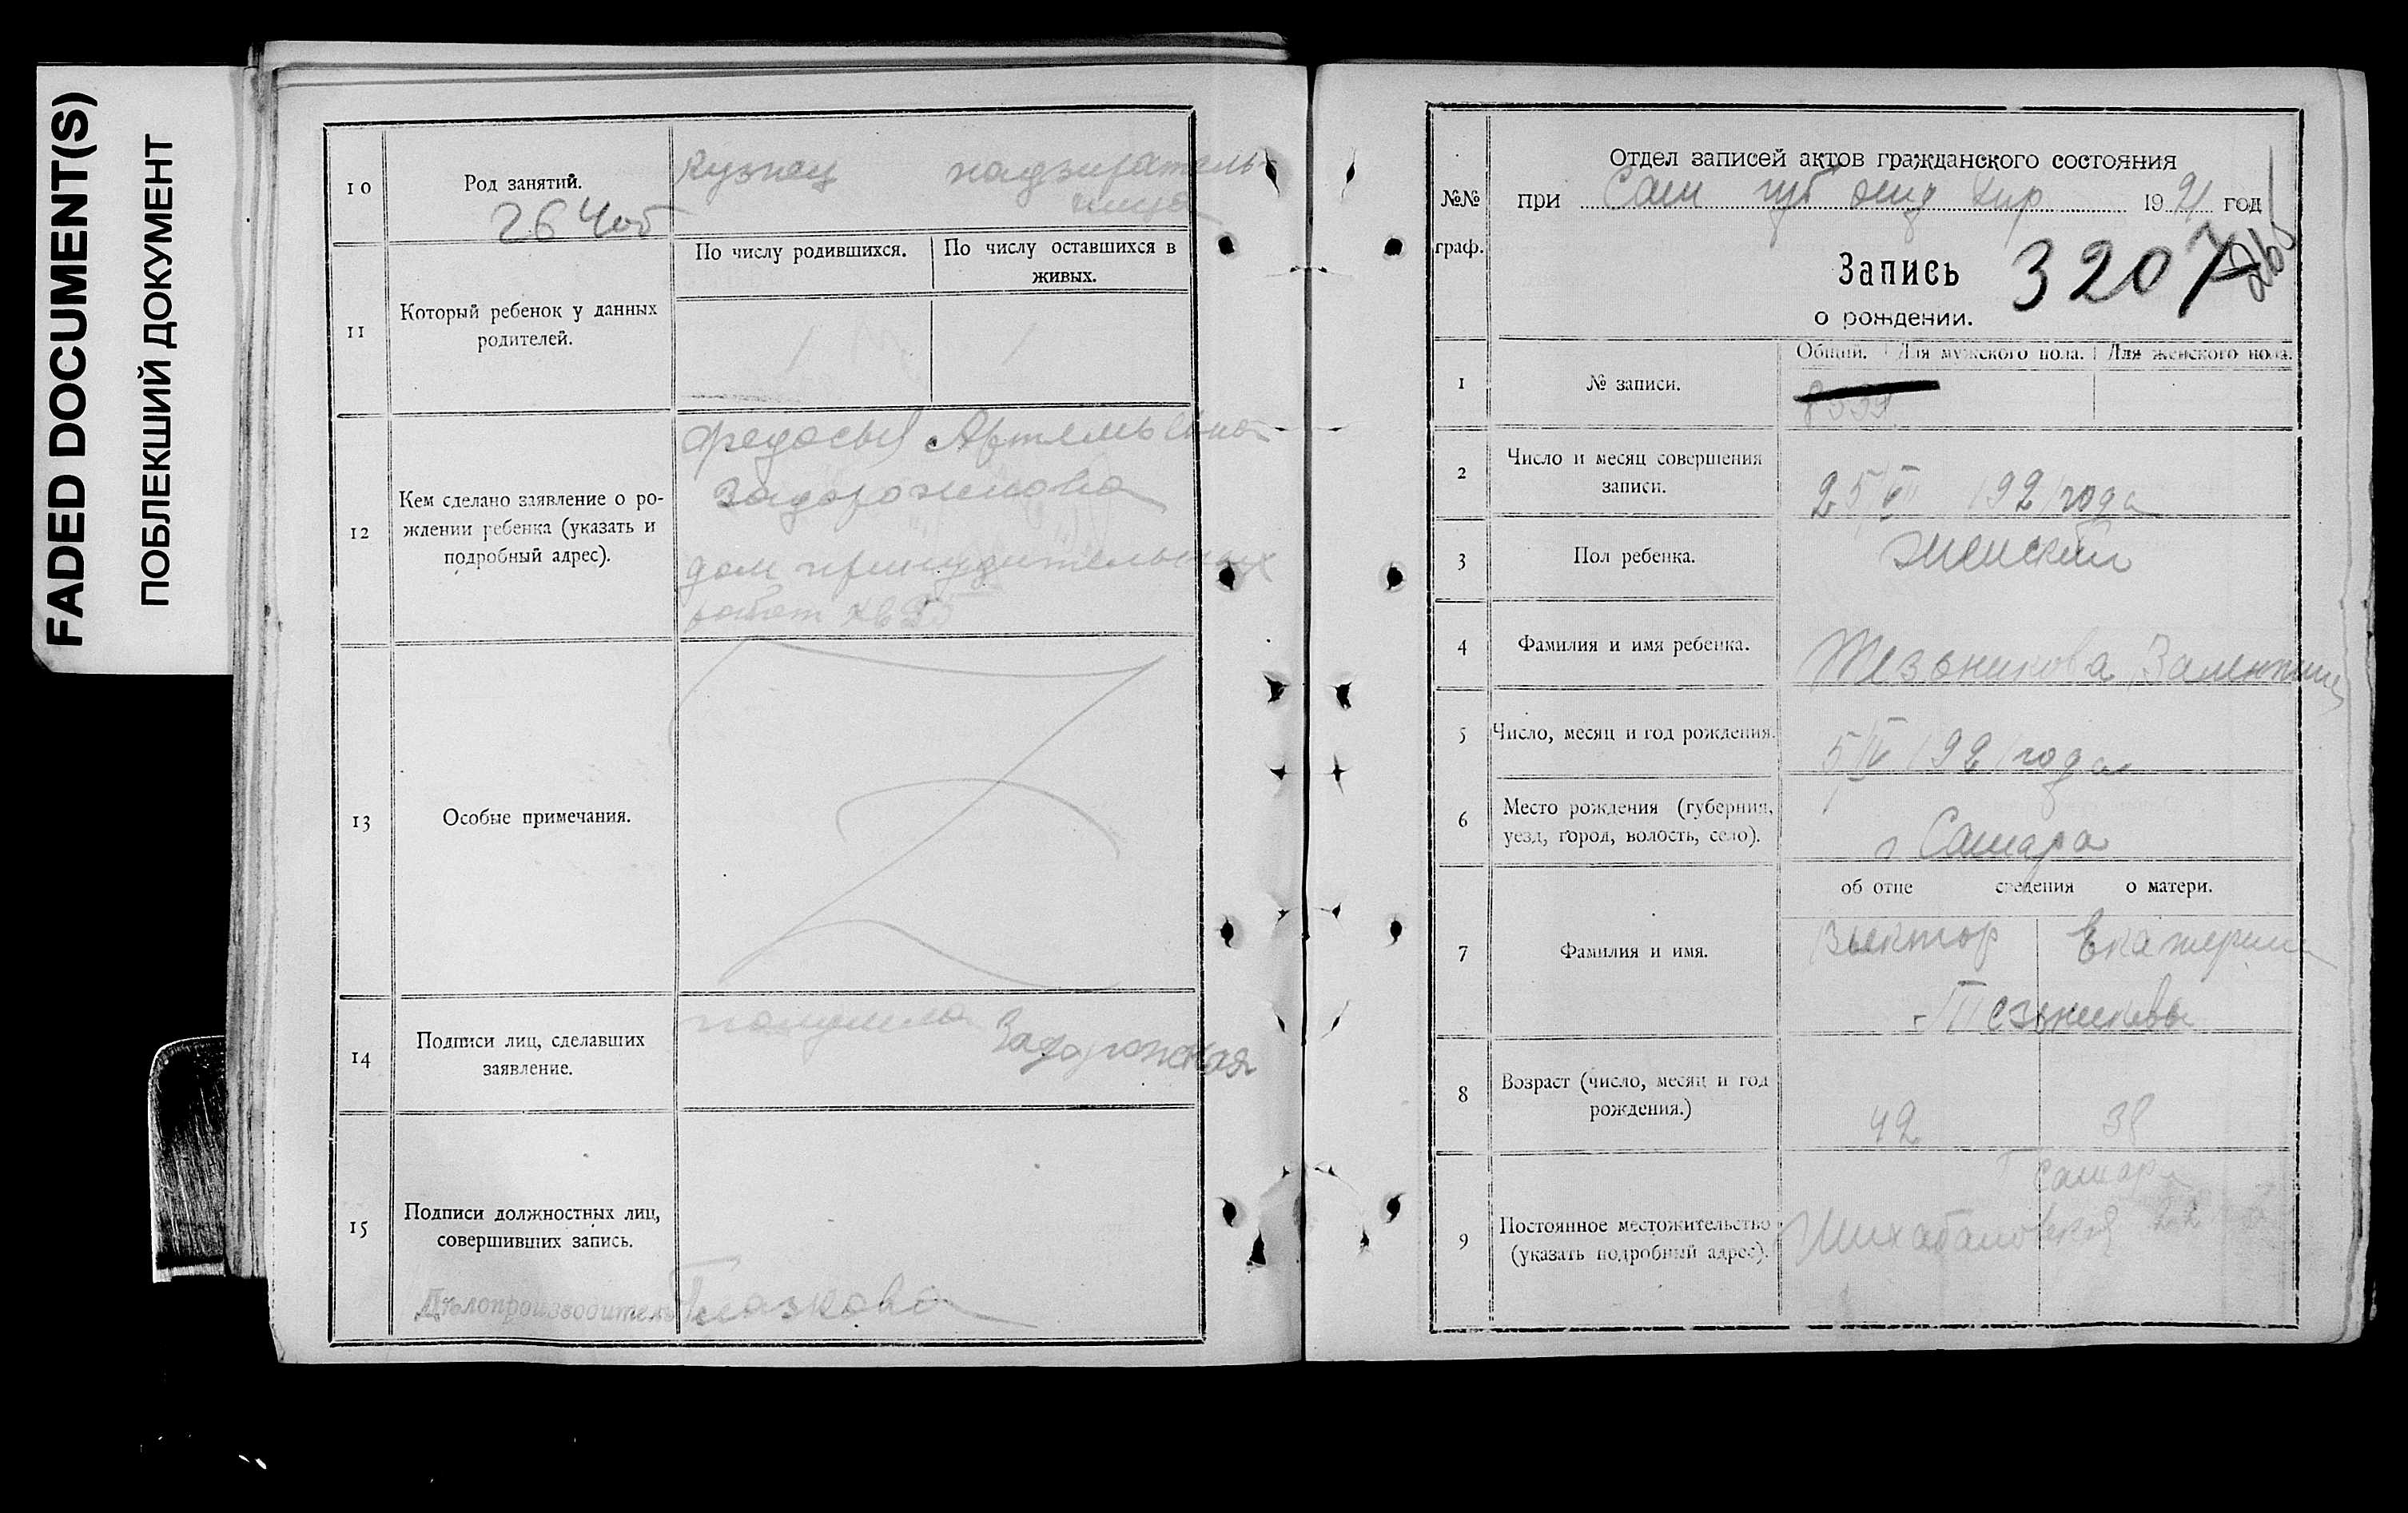 FADED DOCUMENT(S)
ПОБЛЕКШИЙ ДОКУМЕНТ
10
Род занятий.
кузнец надзиратель-
ница
26 Чоб
По числу родившихся. По числу оставшихся в
живых.
11
Который ребенок у данных
родителей.
1 1
12
Кем сделано заявление о ро-
ждении ребенка (указать и
подробный адрес).
Федосья Артемьевна
Задорожнова
дом принудительных
работ кв
13
Особые примечания.
14
Подписи лиц, сделавших
заявление.
Задорожная
15
Подписи должностных лиц,
совершивших запись.
Дѣлопроизводитель Глазкова
№№
граф.
Отдел записей актов гражданского состояния
при Сам губ 1921 год
Запись 3207
о рождении.
1
№ записи.
Общий. Для мужского пола. Для женского пола.
2
Число и месяц совершения
записи.
25 1921 года
3
Пол ребенка.
женский
4
Фамилия и имя ребенка.
Валентина
5
Число, месяц и год рождения.
5/IV 1921 года
6
Место рождения (губерния,
уезд, город, волость, село).
г Самара
об отце сведения о матери.
7
Фамилия и имя.
Виктор Екатерина
8
Возраст (число, месяц и год
рождения.)
42 38
9
Постоянное местожительство
(указать подробный адрес).
г Самара
22